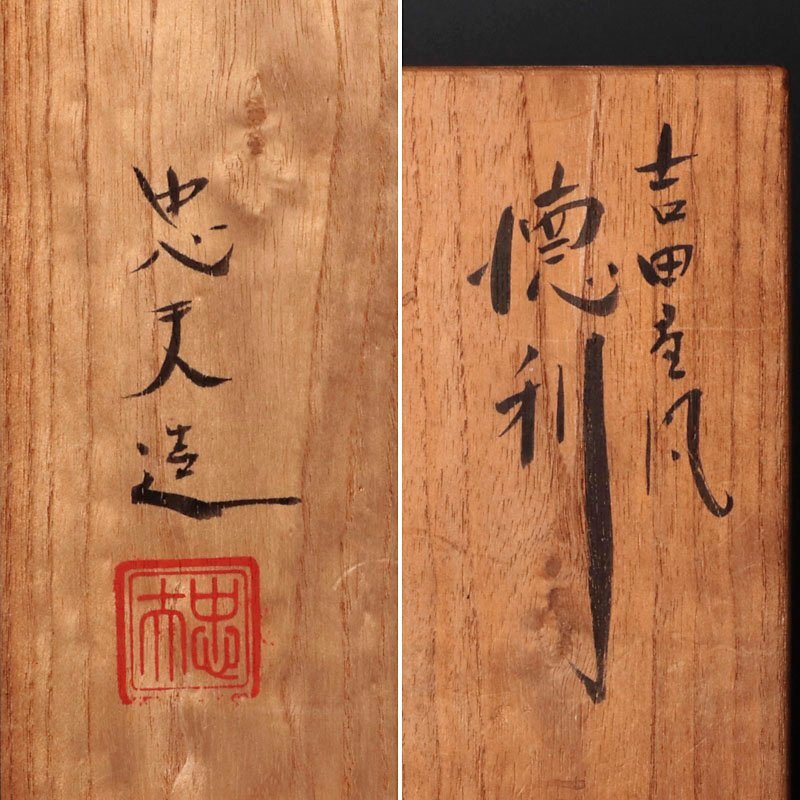 吉田屋風
徳利
忠夫造
忠夫